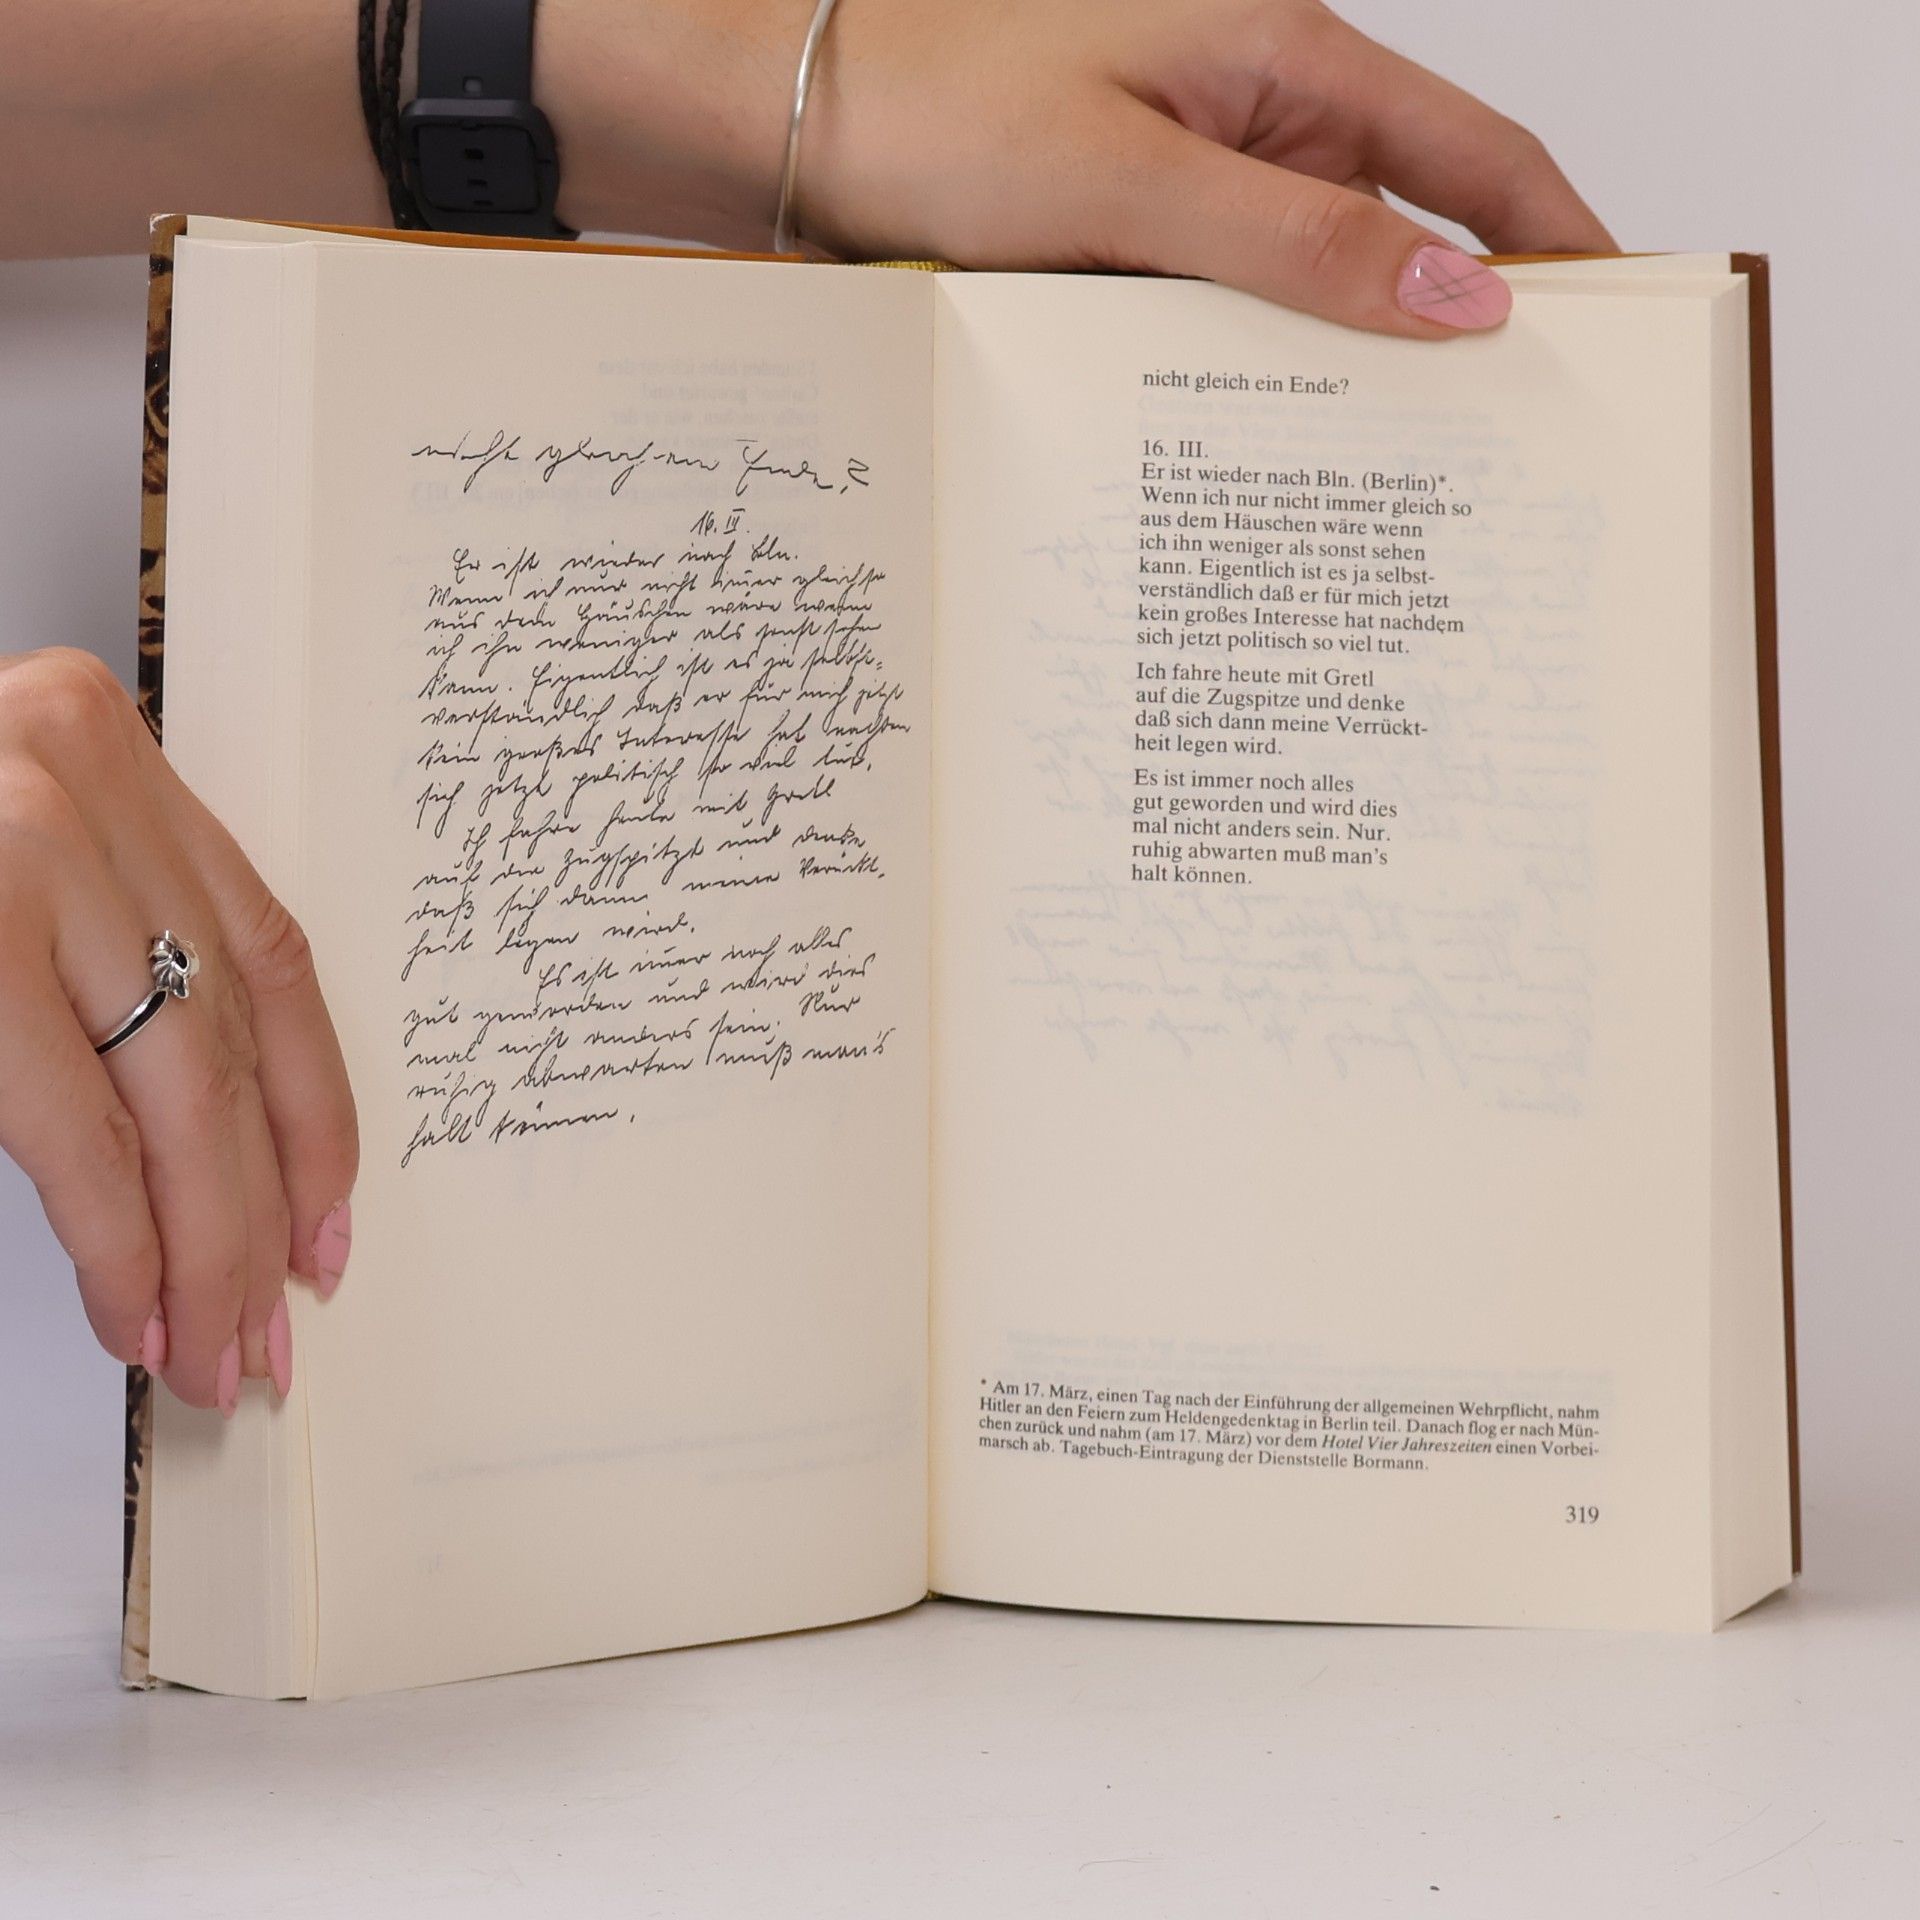 nicht gleich ein Ende?
16. III.
Er ist wieder nach Bln.
Wenn ich nur nicht immer gleich so
aus dem Häuschen wäre wenn
ich ihn weniger als sonst sehen
kann. Eigentlich ist es ja selbst-
verständlich daß er für mich jetzt
kein großes Interesse hat nachdem
sich jetzt politisch so viel tut.
Ich fahre heute mit Gretl
auf die Zugspitze und denke
daß sich dann meine Verrückt-
heit legen wird.
Es ist immer noch alles
gut geworden und wird dies
mal nicht anders sein. Nur
ruhig abwarten muß man's
halt können.
nicht gleich ein Ende?
16. III.
Er ist wieder nach Bln. (Berlin)*.
Wenn ich nur nicht immer gleich so
aus dem Häuschen wäre wenn
ich ihn weniger als sonst sehen
kann. Eigentlich ist es ja selbst-
verständlich daß er für mich jetzt
kein großes Interesse hat nachdem
sich jetzt politisch so viel tut.
Ich fahre heute mit Gretl
auf die Zugspitze und denke
daß sich dann meine Verrückt-
heit legen wird.
Es ist immer noch alles
gut geworden und wird dies
mal nicht anders sein. Nur.
ruhig abwarten muß man's
halt können.
* Am 17. März, einen Tag nach der Einführung der allgemeinen Wehrpflicht, nahm
Hitler an den Feiern zum Heldengedenktag in Berlin teil. Danach flog er nach Mün-
chen zurück und nahm (am 17. März) vor dem Hotel Vier Jahreszeiten einen Vorbei-
marsch ab. Tagebuch-Eintragung der Dienststelle Bormann.
319